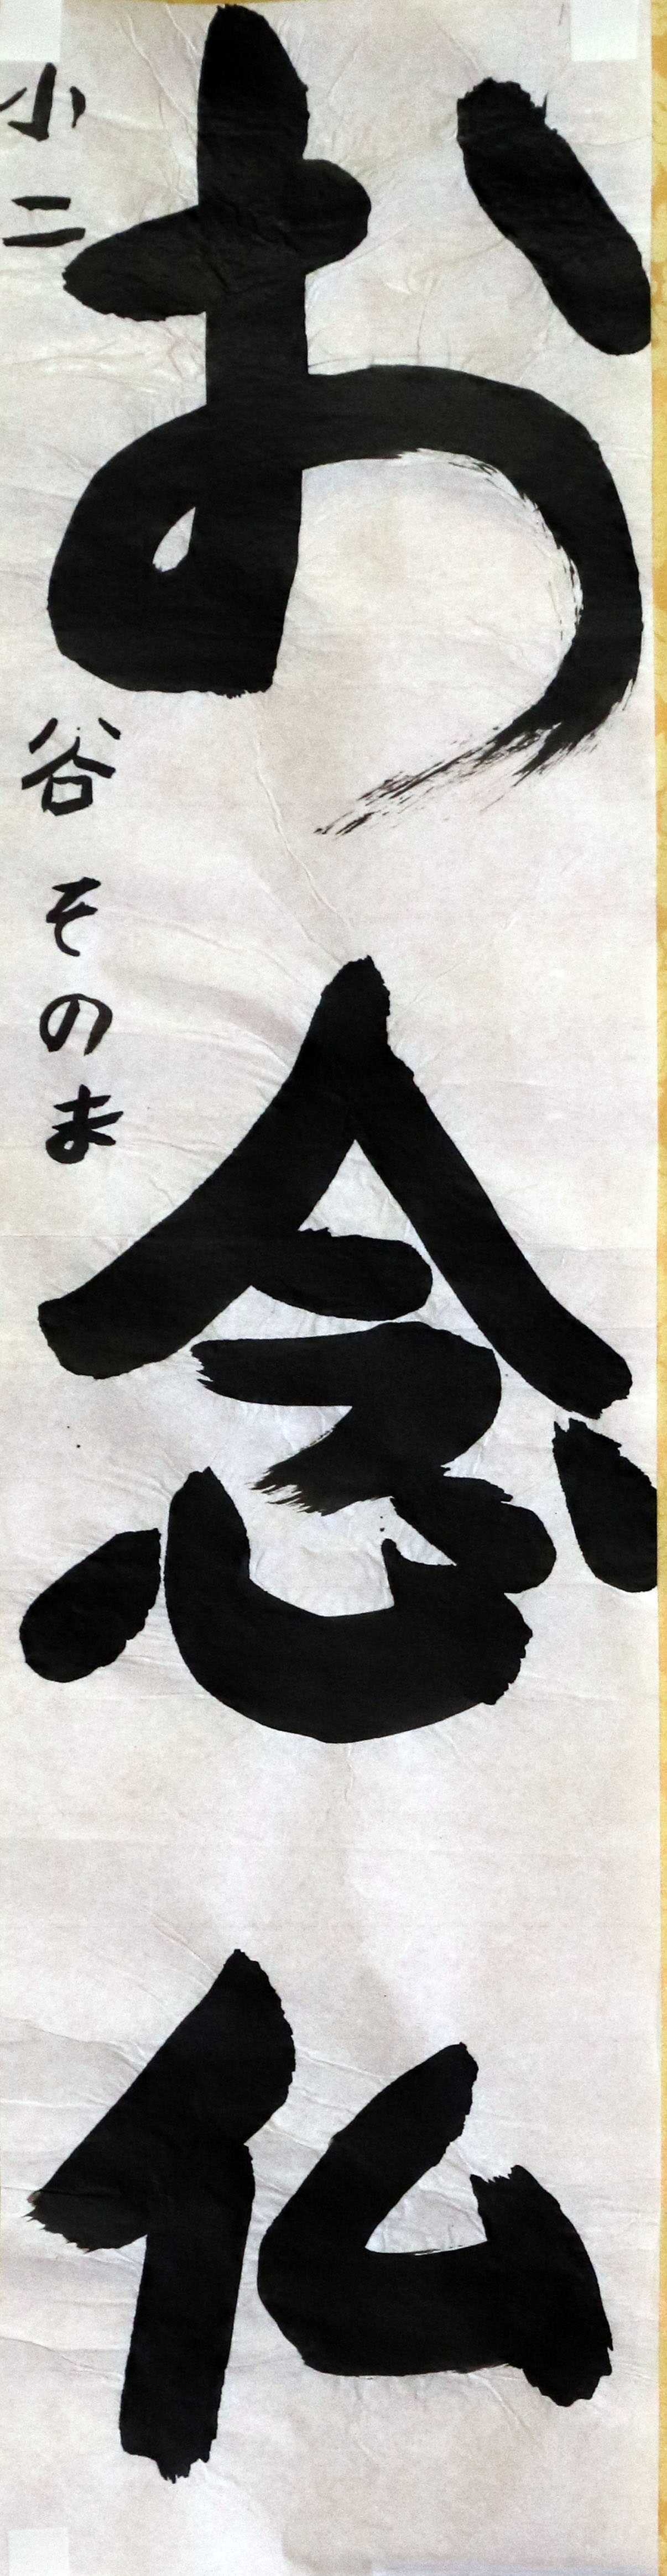 お念仏
小二 谷そのま